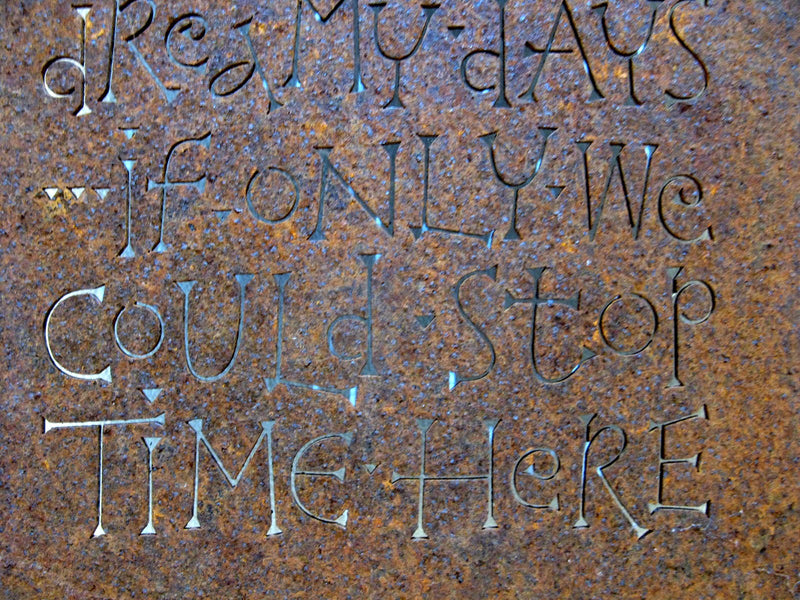 dReAMY·dAYS
...if·oNLY·We
CoULd·Stop
TiMe·HeRE